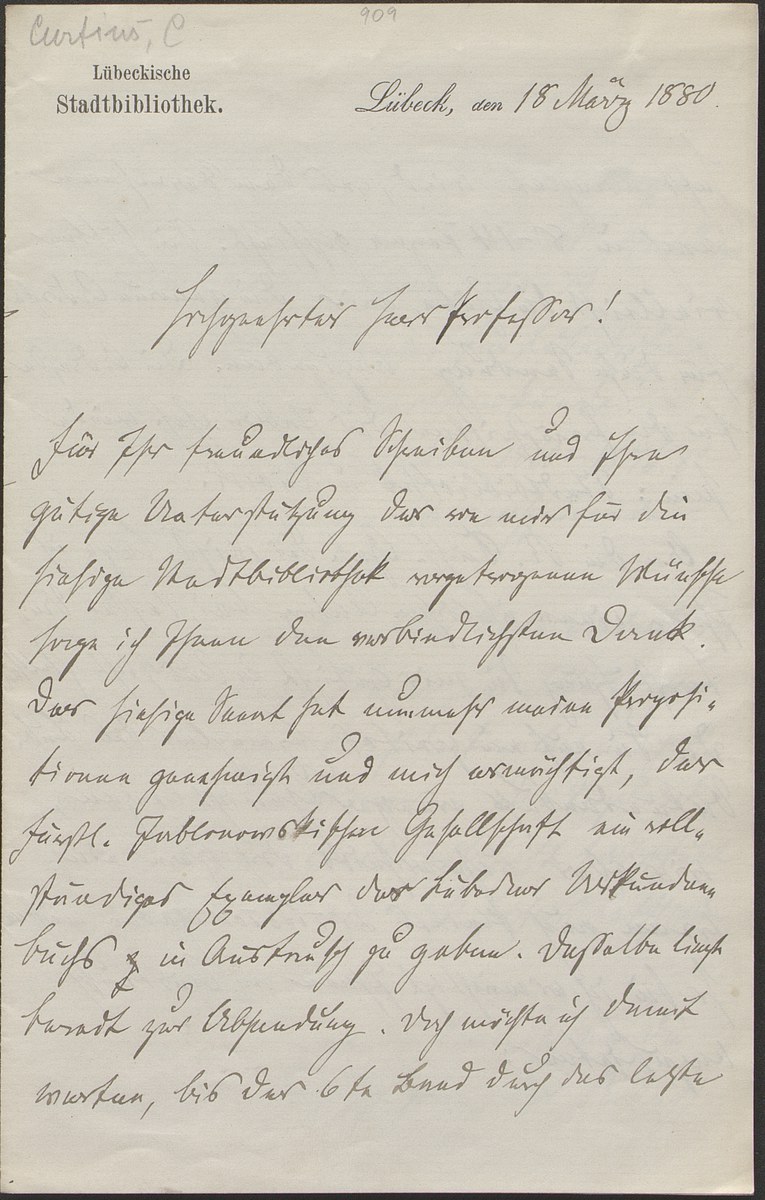 Curtius, C
909
Lübeckische
Stadtbibliothek.
Lübeck, den 18 März 1880.
Hochgeehrter Herr Professor!
Für Ihr freundliches Schreiben und Ihre
gütige Unterstützung der von mir für die
hiesige Stadtbibliothek vorgetragenen Wünsche
sage ich Ihnen den verbindlichsten Dank.
Der hiesige Senat hat nunmehr meine Proposi-
tionen genehmigt und mich ermächtigt, der
fürstl. Jablonowskischen Gesellschaft ein voll-
ständiges Exemplar des Lübecker Urkunden-
buchs in Austausch zu geben. Dasselbe liegt
bereit zur Absendung. Doch möchte ich damit
warten, bis der 6te Band durch das letzte